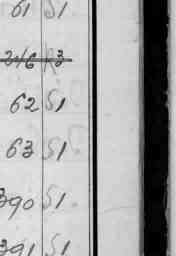 61 S1
346 R3
62 S1
63 S1
390 S1
391 S1